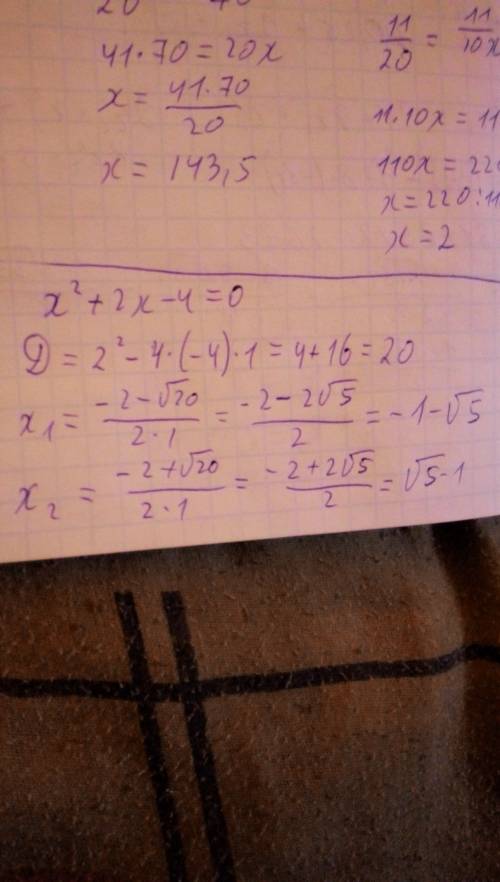 41·70=20x
x=41·70/20
x=143,5
11/20=11/10x
11·10x=11
110x=220
x=220:11
x=2
x²+2x-4=0
D=2²-4·(-4)·1=4+16=20
x₁=(-2-√20)/(2·1)=(-2-2√5)/2=-1-√5
x₂=(-2+√20)/(2·1)=(-2+2√5)/2=√5-1